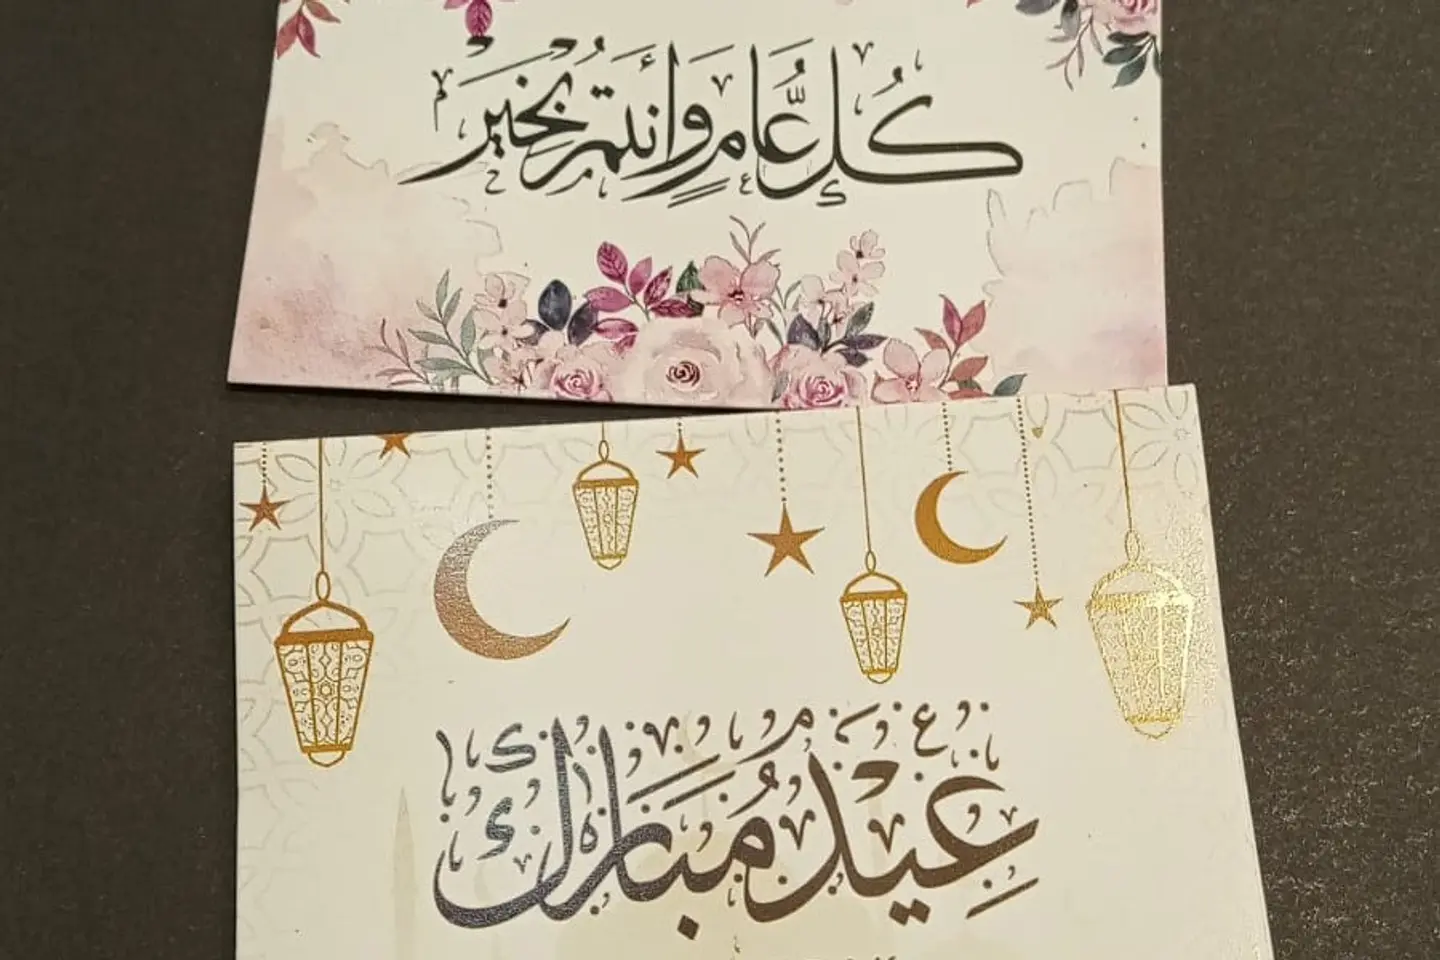 كُل عَّامٍ وَأنتُم بخَيْرَ
عِيْد مُبَارَك